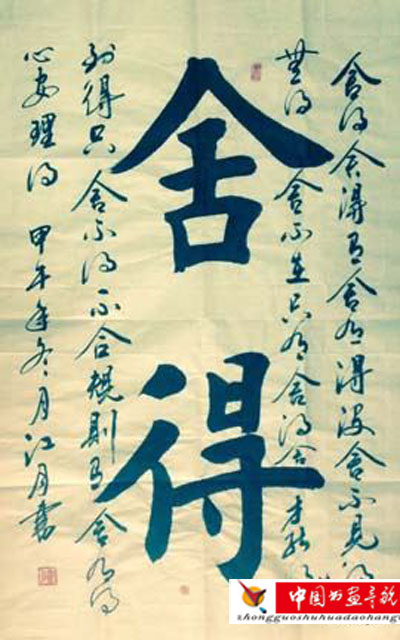 舍得
舍得舍得有舍有得没舍不見得
無得 舍不在只有舍得舍才能
到得只舍不得不合規則有舍有得
心安理得 甲午年冬月江月書
中国书画导航
zhongguoshuhuadaohang